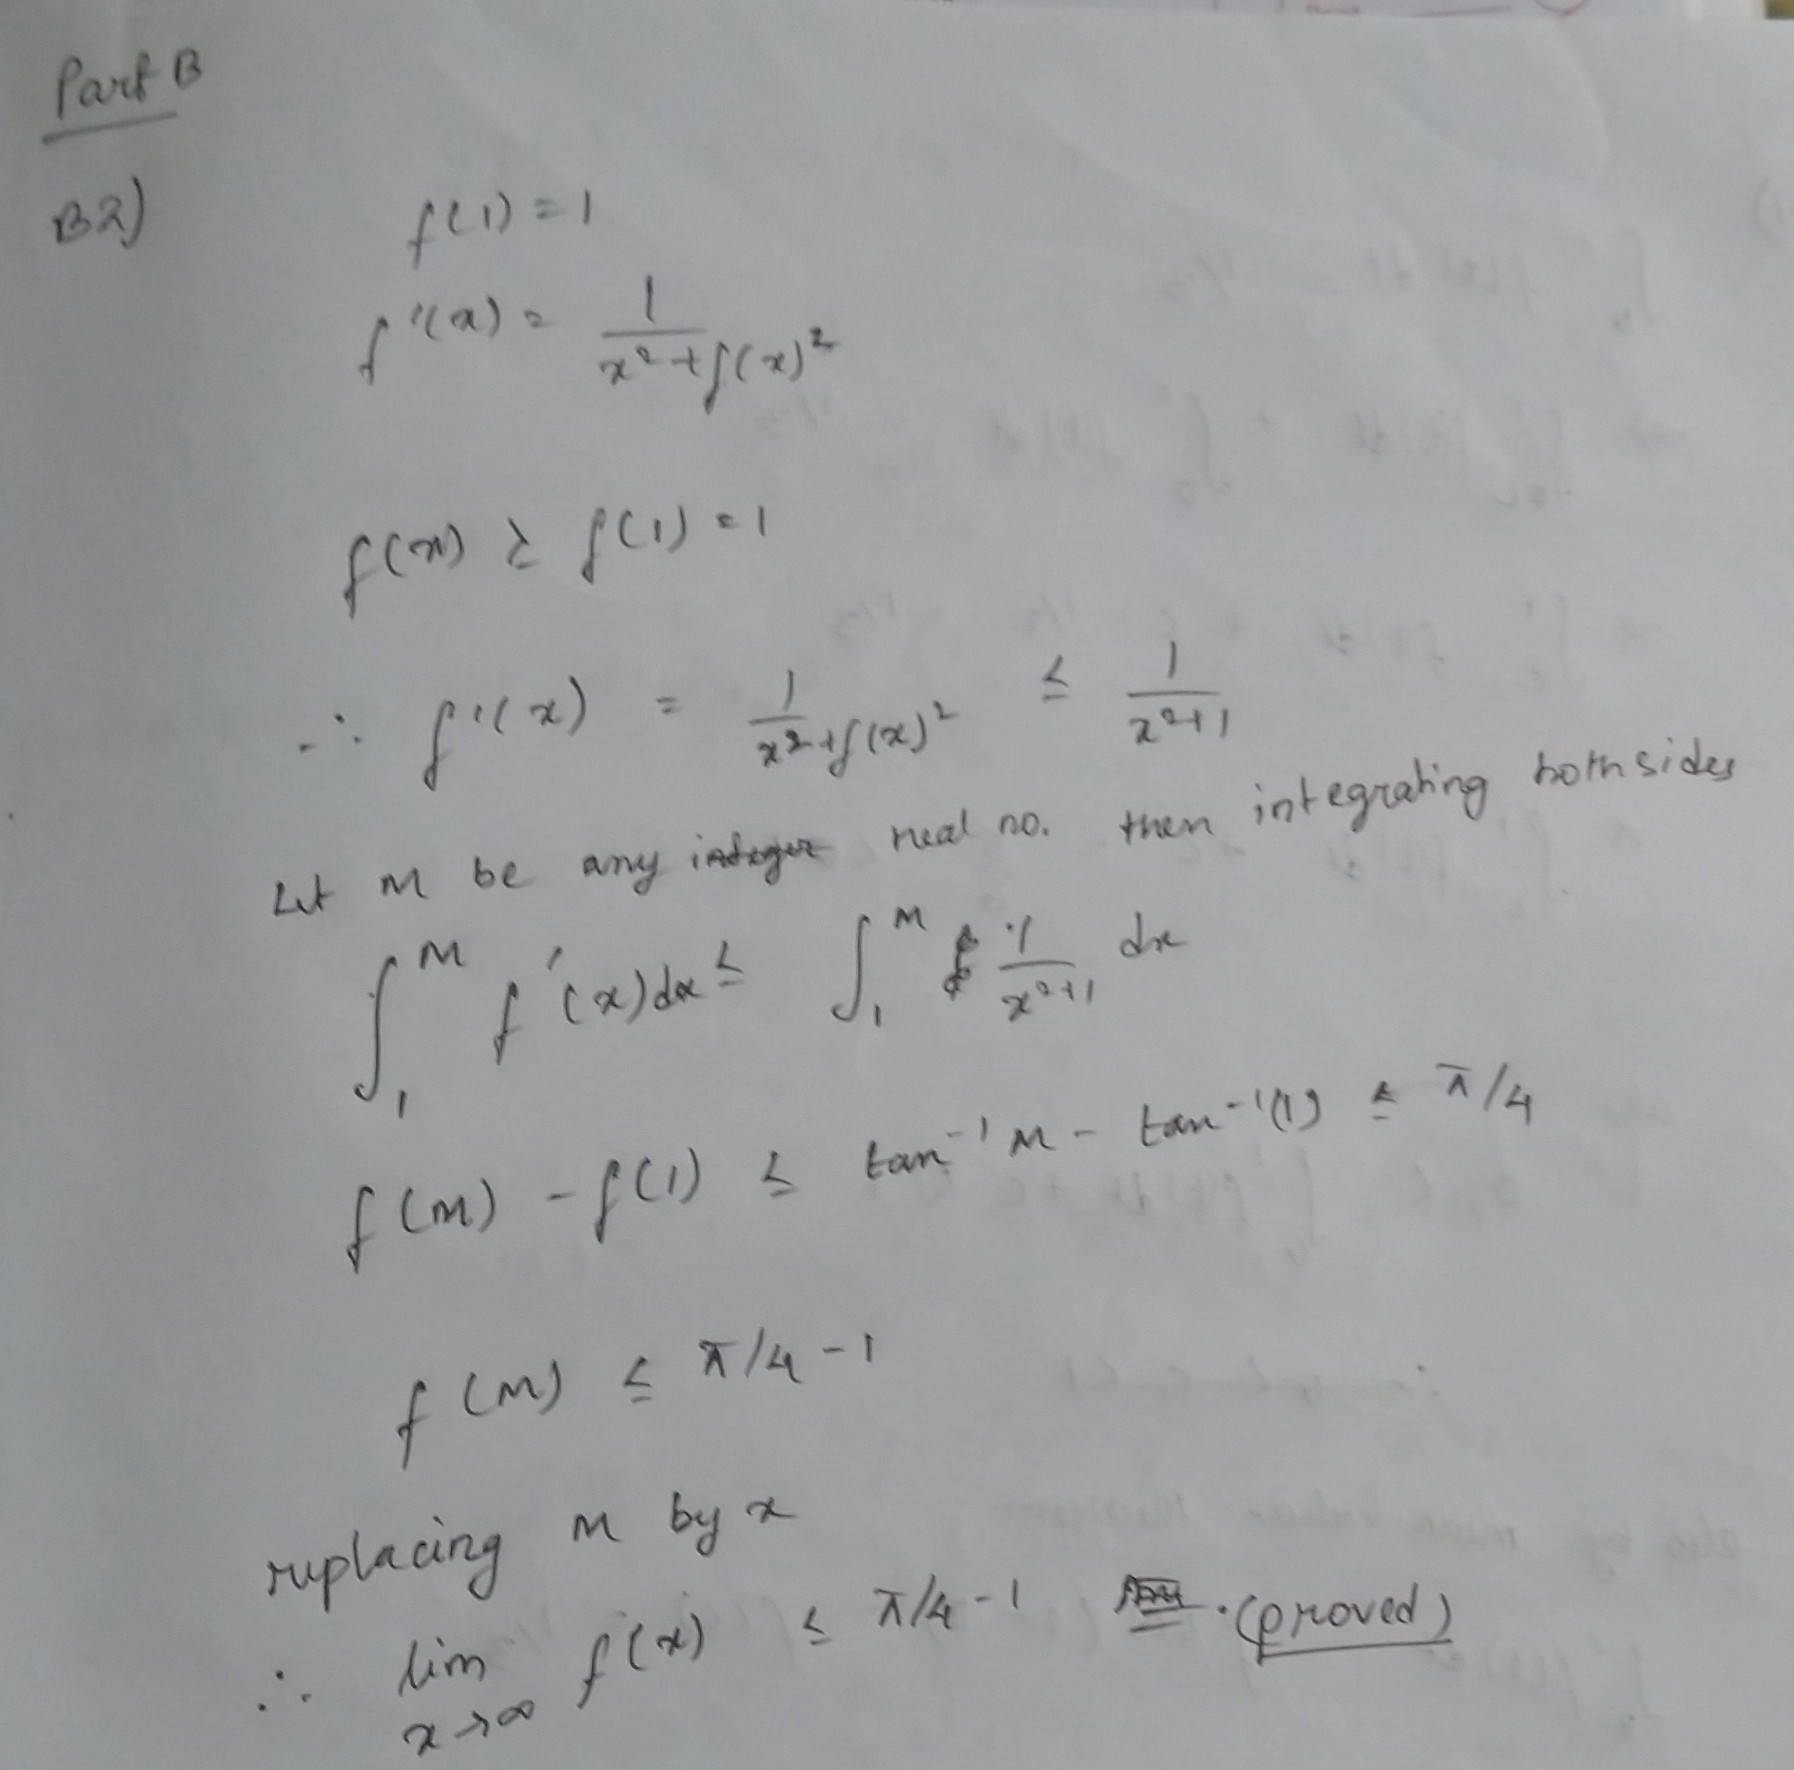 Part B
B2)
f(1) = 1
f'(x) = 1/(x²+f(x)²)
f(x) ≥ f(1) = 1
∴ f'(x) = 1/(x²+f(x)²) ≤ 1/(x²+1)
Let M be any real no. then integrating both sides
∫₁ᴹ f'(x)dx ≤ ∫₁ᴹ 1/(x²+1) dx
f(M) - f(1) ≤ tan⁻¹M - tan⁻¹(1) ≤ π/4
f(M) ≤ π/4 - 1
replacing M by x
∴ lim x→∞ f(x) ≤ π/4 - 1 . (proved)